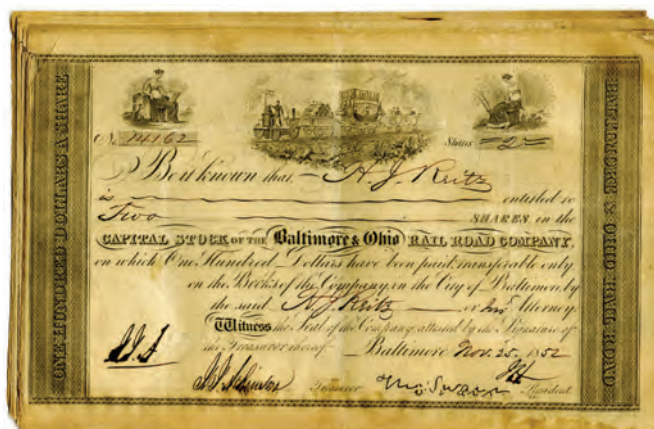 ONE HUNDRED DOLLARS A SHARE
BALTIMORE & OHIO RAIL ROAD
No. 14162 Shares 2
Be it known that A. J. Reitz
is entitled to
Two SHARES in the
CAPITAL STOCK OF THE Baltimore & Ohio RAIL ROAD COMPANY,
on which One Hundred Dollars have been paid, transferable only
on the Books of the Company in the City of Baltimore by
the said A. J. Reitz or Attorney
Witness the Seal of the Company attested by the Signature of
the Treasurer thereof Baltimore Nov. 25. 1852
Treasurer Tho. Swann President